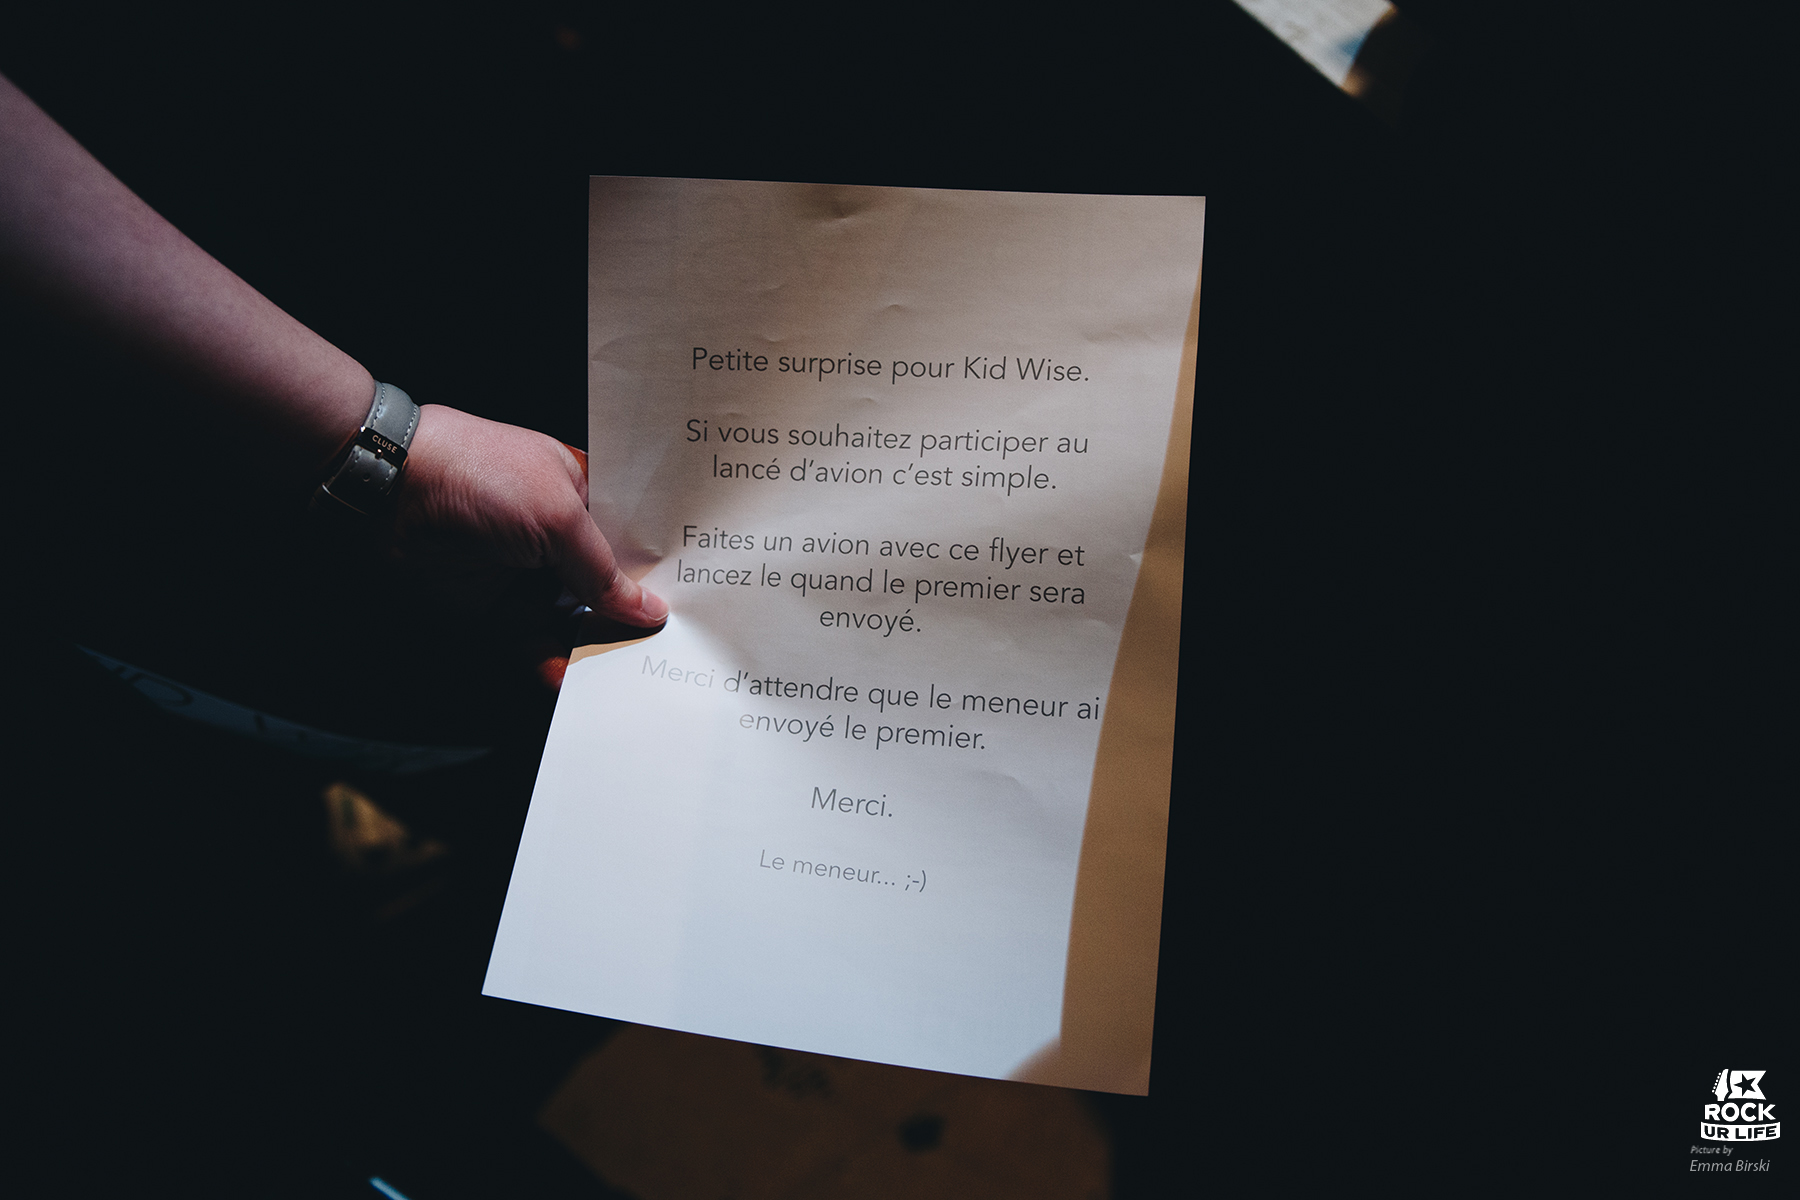 Petite surprise pour Kid Wise.
Si vous souhaitez participer au
lancé d'avion c'est simple.
Faites un avion avec ce flyer et
lancez le quand le premier sera
envoyé.
Merci d'attendre que le meneur ai
envoyé le premier.
Merci.
Le meneur... ;-)
CLUSE
ROCK
UR LIFE
Picture by
Emma Birski